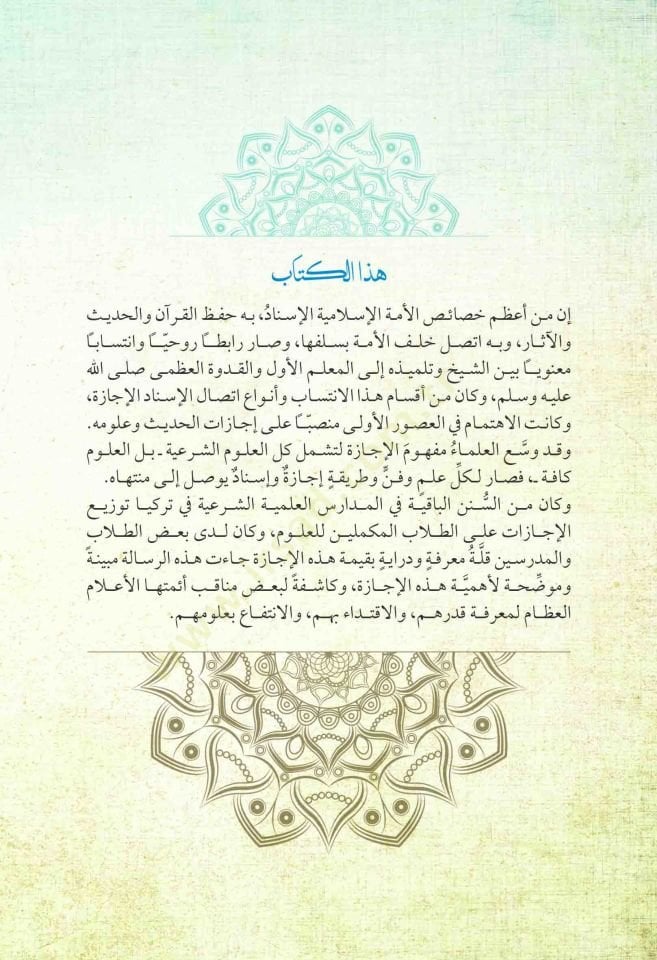 هذا الكتاب
إن من أعظم خصائص الأمة الإسلامية الإسنادُ، به حفظ القرآن والحديث
والآثار، وبه اتصل خلف الأمة بسلفها، وصار رابطًا روحيًّا وانتسابًا
معنويًا بين الشيخ وتلميذه إلى المعلم الأول والقدوة العظمى صلى الله
عليه وسلم، وكان من أقسام هذا الانتساب وأنواع اتصال الإسناد الإجازة،
وكانت الاهتمام في العصور الأولى منصبًّا على إجازات الحديث وعلومه.
وقد وسَّع العلماءُ مفهومَ الإجازة لتشمل كل العلوم الشرعية ـ بل العلوم
كافة ـ، فصار لكلِّ علمٍ وفنٍّ وطريقةٍ إجازةٌ وإسنادٌ يوصل إلى منتهاه.
وكان من السُّنن الباقية في المدارس العلمية الشرعية في تركيا توزيع
الإجازات على الطلاب المكملين للعلوم، وكان لدى بعض الطلاب
والمدرسين قلَّةُ معرفةٍ ودرايةٍ بقيمة هذه الإجازة جاءت هذه الرسالة مبينةً
وموضِّحة لأهميَّة هذه الإجازة، وكاشفةً لبعض مناقب أئمتها الأعلام
العظام لمعرفة قدرهم، والاقتداء بهم، والانتفاع بعلومهم.